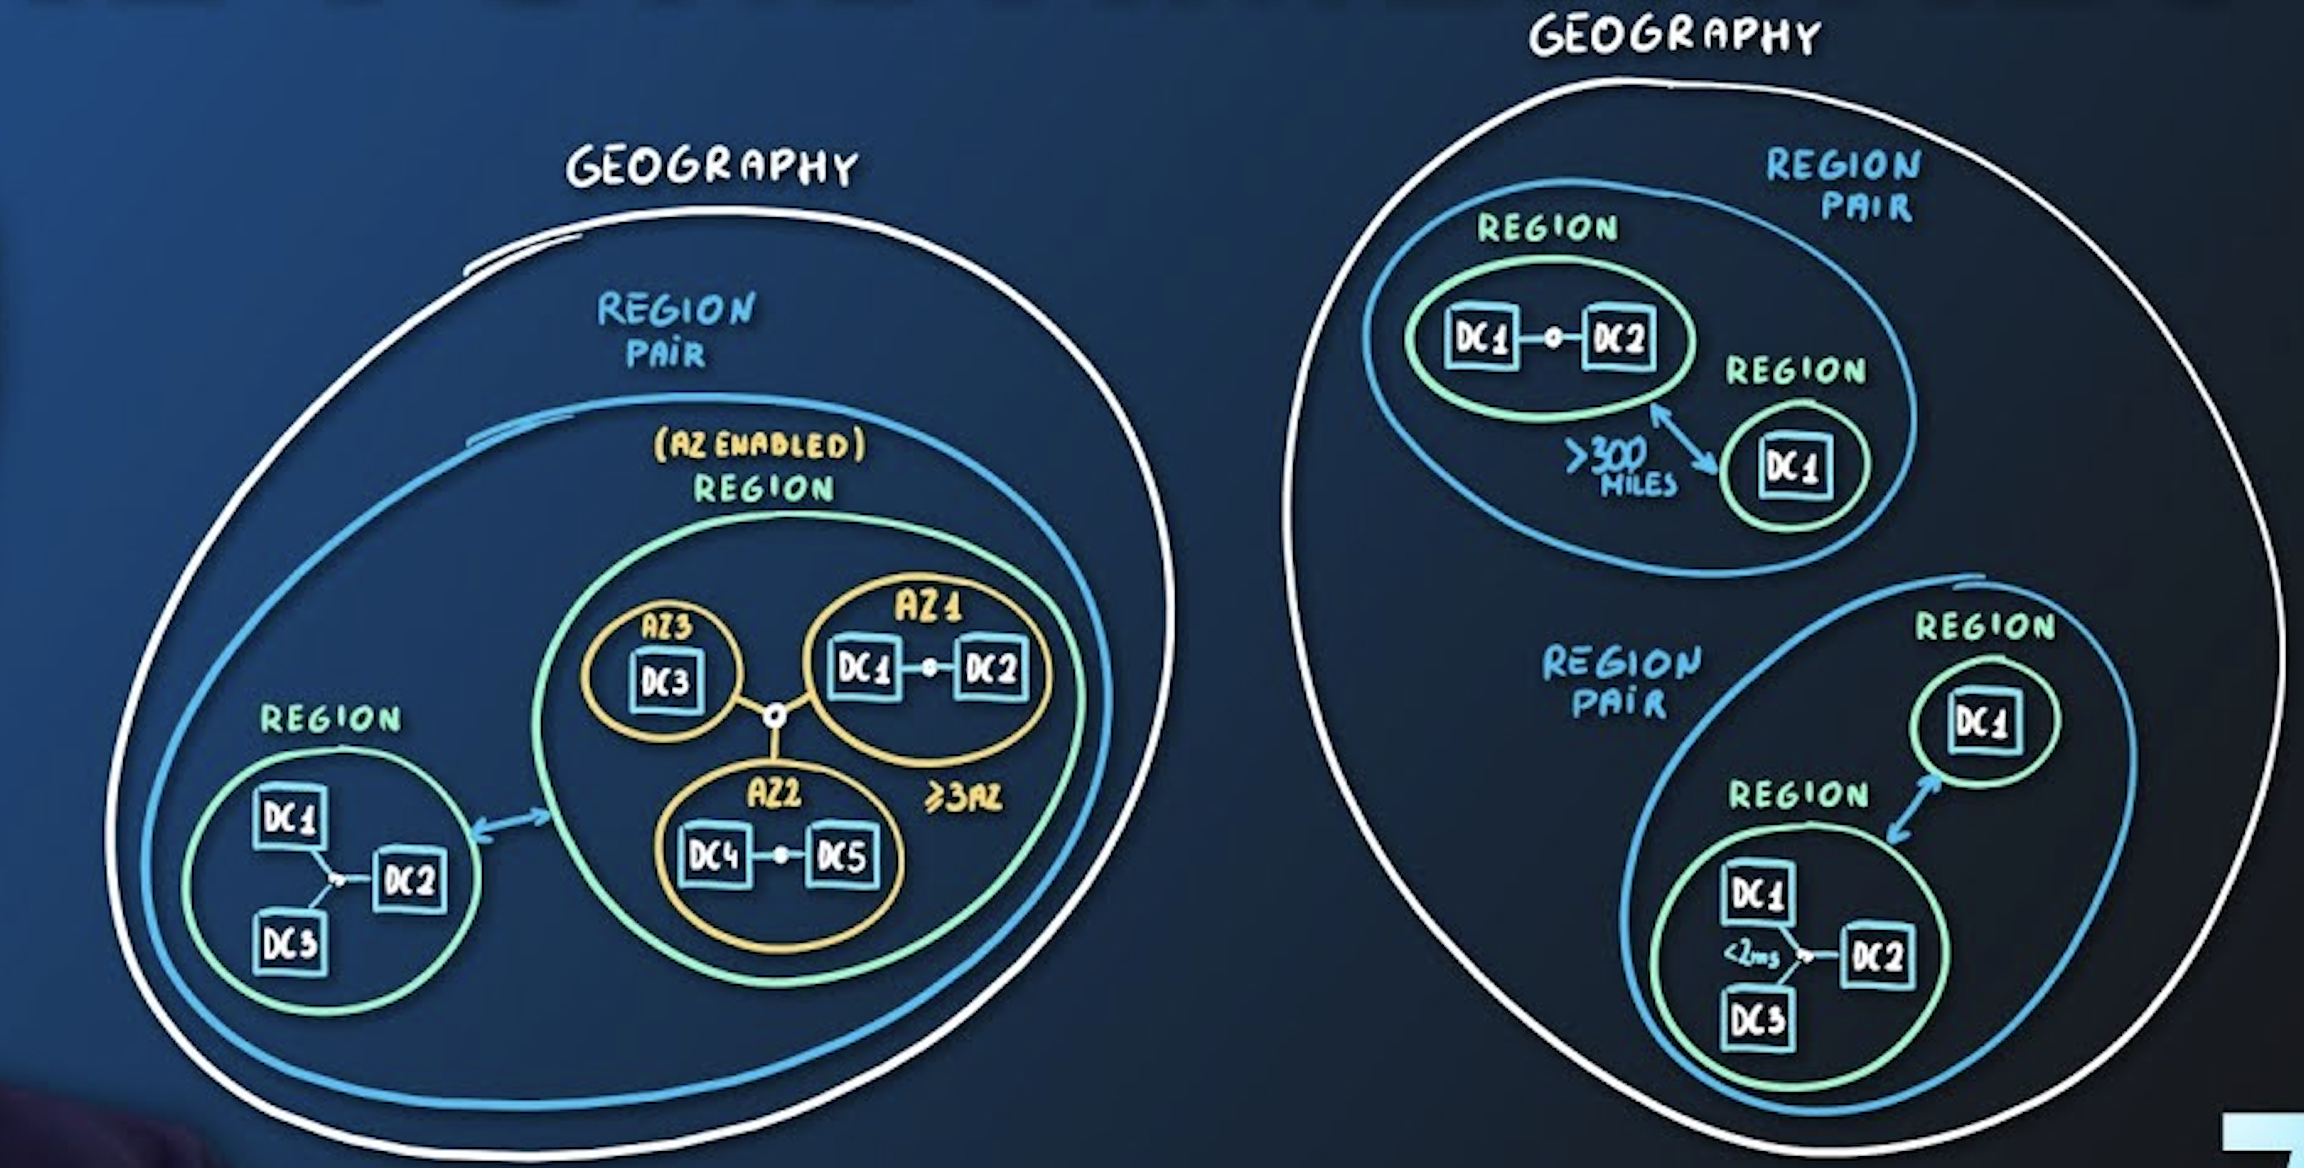 GEOGRAPHY
REGION
PAIR
(AZ ENABLED)
REGION
AZ3
DC3
AZ1
DC1
DC2
AZ2
DC4
DC5
≥3AZ
REGION
DC1
DC2
DC3
GEOGRAPHY
REGION
PAIR
REGION
DC1
DC2
REGION
DC1
>300
MILES
REGION
PAIR
REGION
DC1
REGION
DC1
<2ms
DC2
DC3